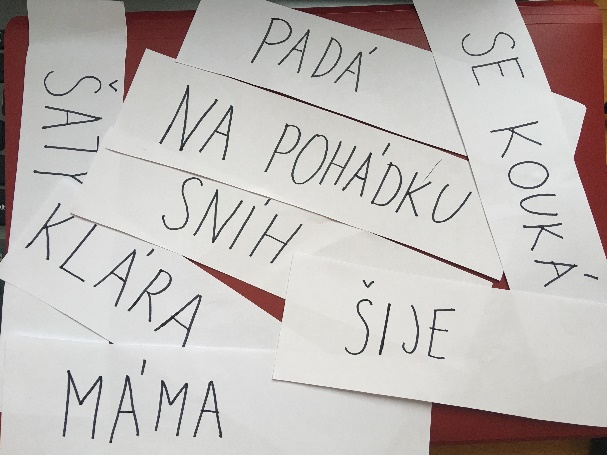 PADÁ
SE KOUKÁ
ŠATY
NA POHÁDKU
SNÍH
KLÁRA
ŠIJE
MÁMA